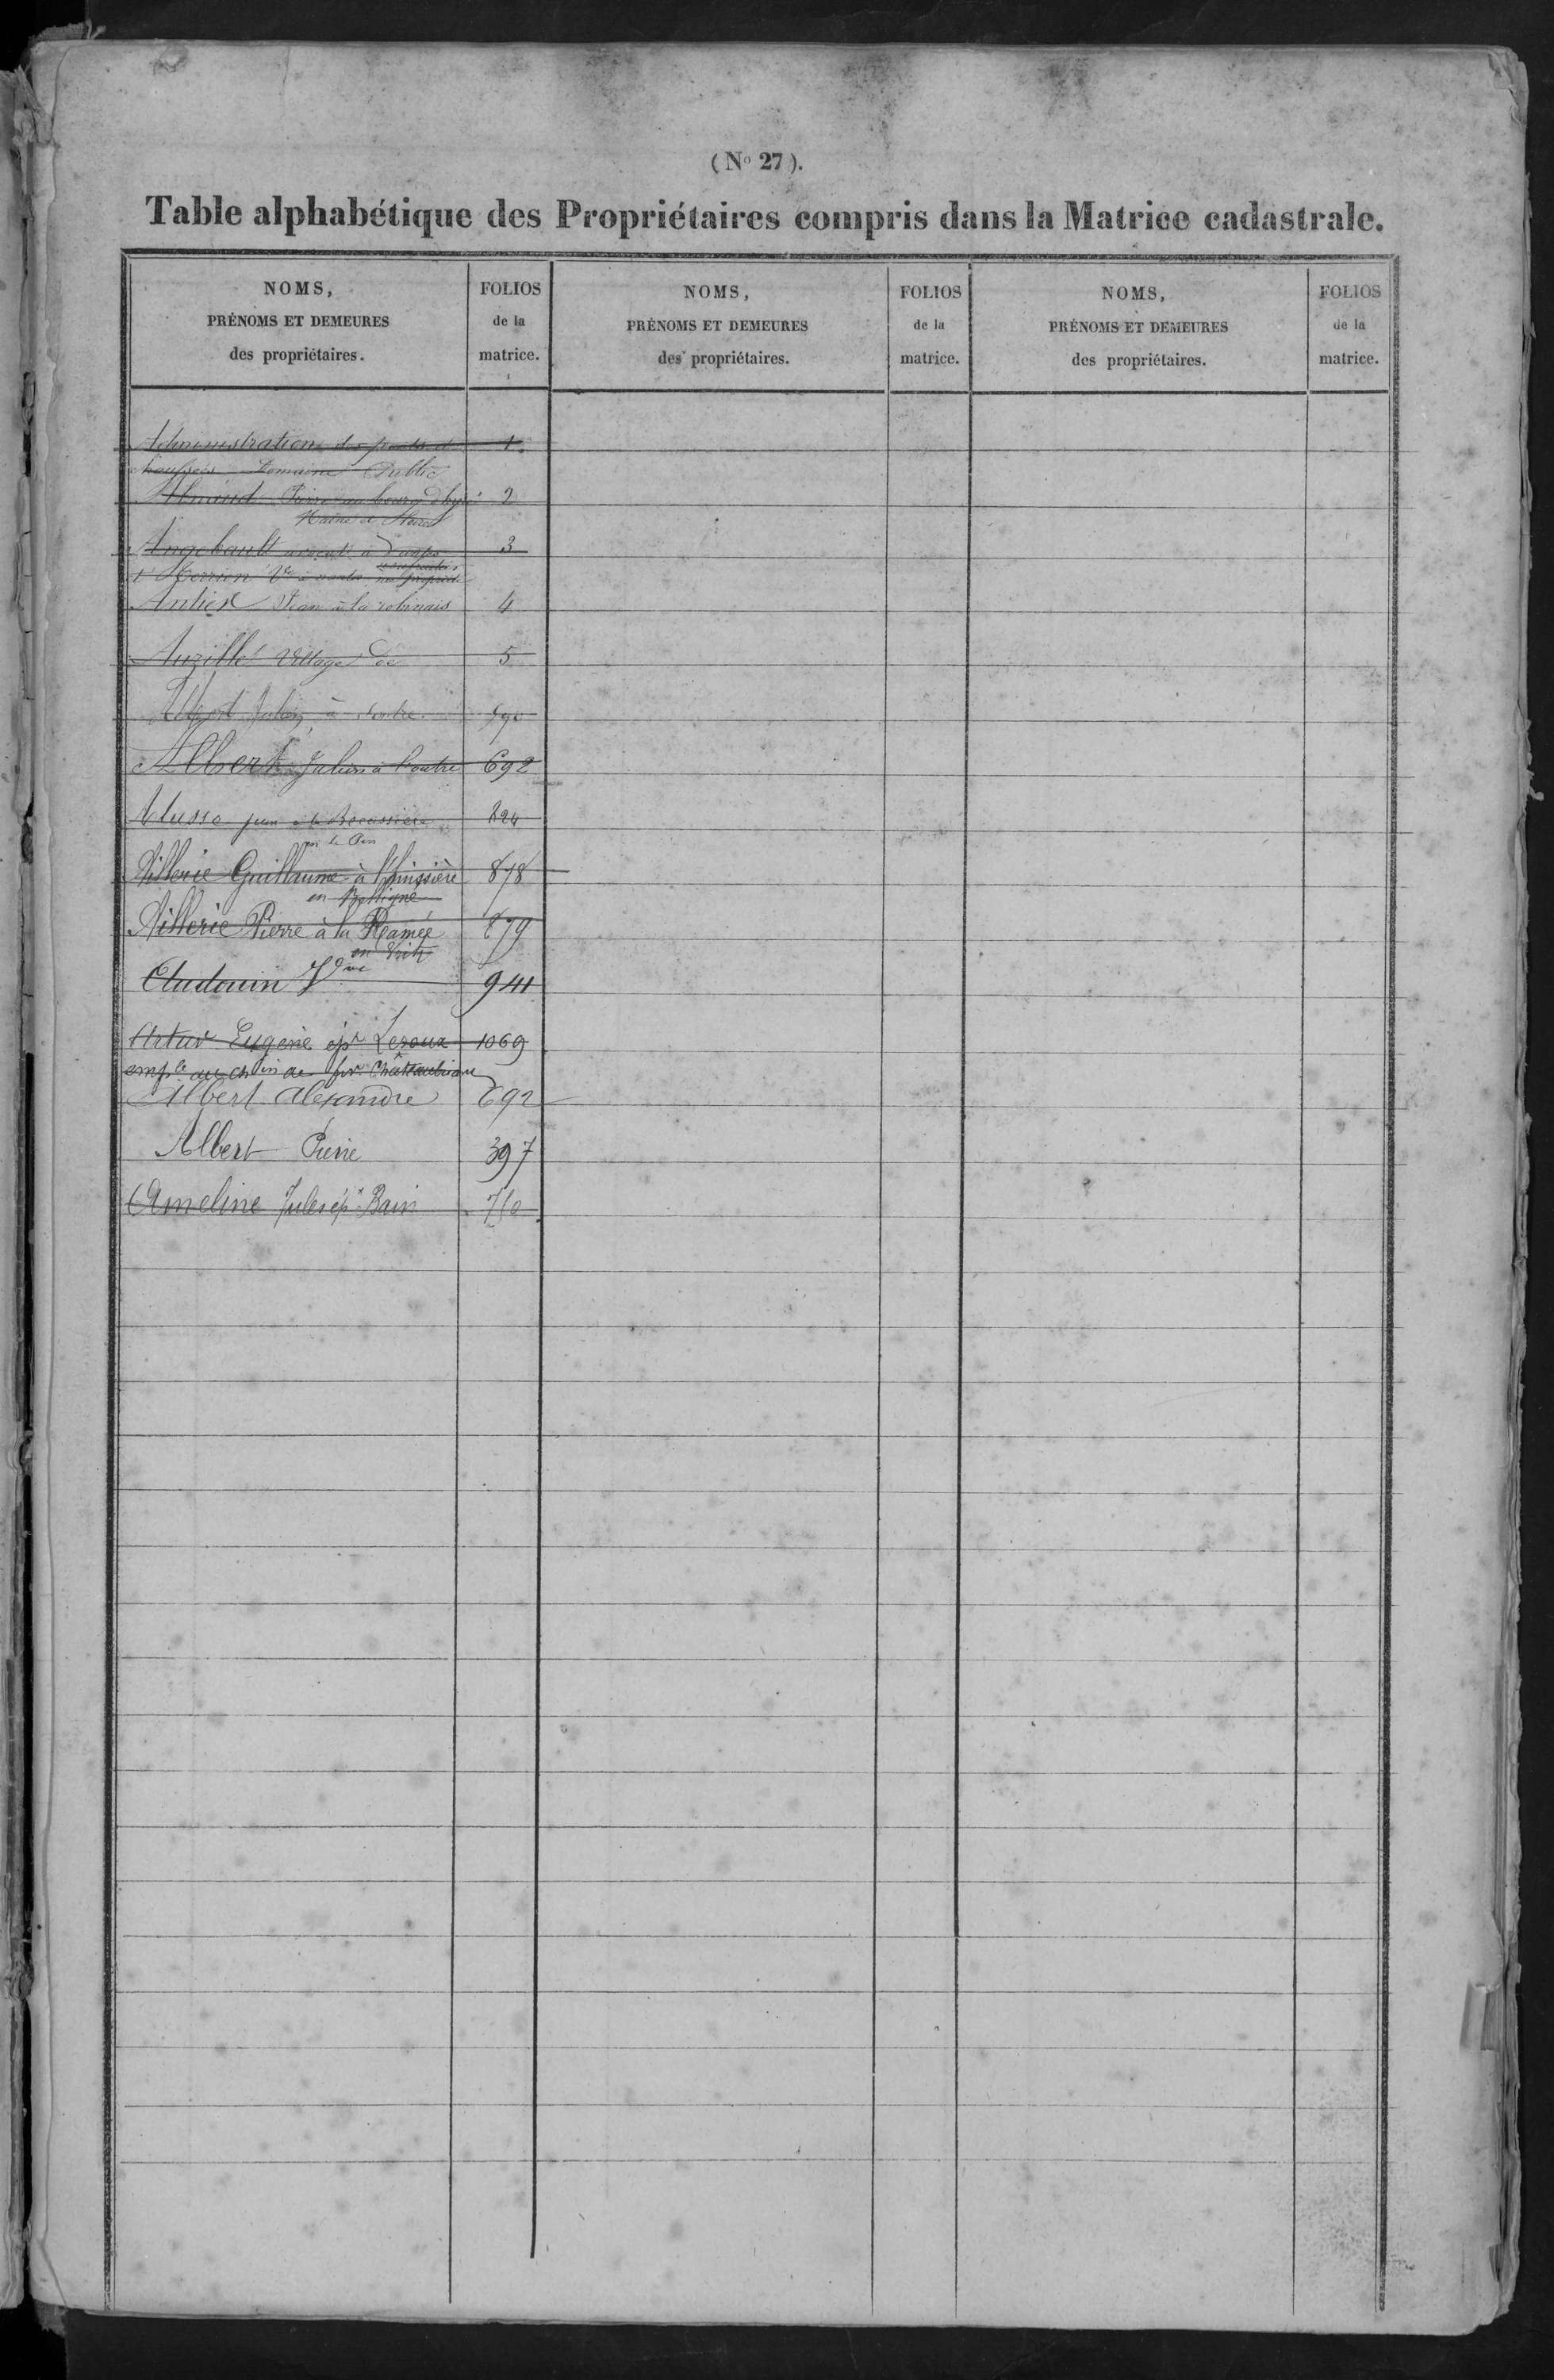 (No 27).
Table alphabétique des Propriétaires compris dans la Matrice cadastrale.
NOMS, PRÉNOMS ET DEMEURES des propriétaires.
FOLIOS de la matrice.
NOMS, PRÉNOMS ET DEMEURES des propriétaires.
FOLIOS de la matrice.
NOMS, PRÉNOMS ET DEMEURES des propriétaires.
FOLIOS de la matrice.
Administration des ponts et 1
chaussées Domaine Public
Pierre au bourg 2
Angebault avocat à 3
Vve à
Antier Jean à la robinais 4
Auzillé Village de 5
Albert à
Albert Julien à 692
à la 824
en le Pin
Aillerie Guillaume à 878
en
Aillerie Pierre à la Ramée 879
en Vritz
Audouin 941
Artur Eugène épx Leroux 1069
empé au chin de fer Châteaubriant
Albert Alexandre 692
Albert Pierre 397
Ameline Jules épx Bain 750